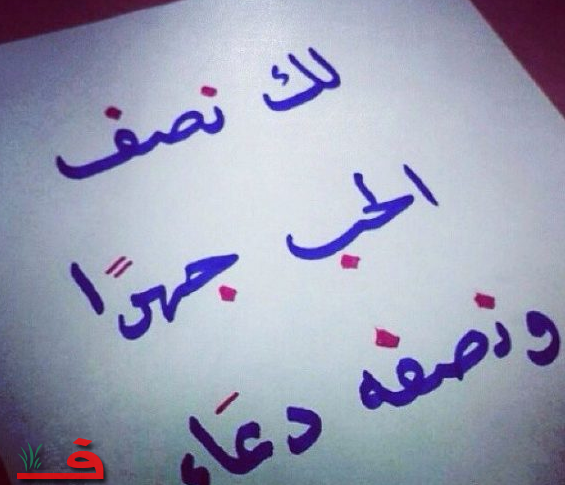 لك نصف
الحب جهرًا
ونصفه دعاَء
فـ